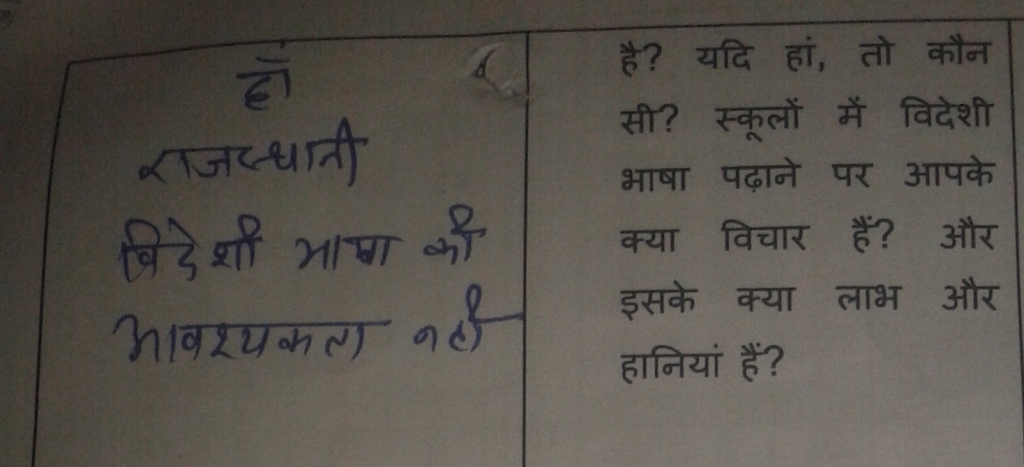 हाँ
राजस्थानी
विदेशी भाषा की
आवश्यकता नही
है? यदि हां, तो कौन
सी? स्कूलों में विदेशी
भाषा पढ़ाने पर आपके
क्या विचार हैं? और
इसके क्या लाभ और
हानियां हैं?